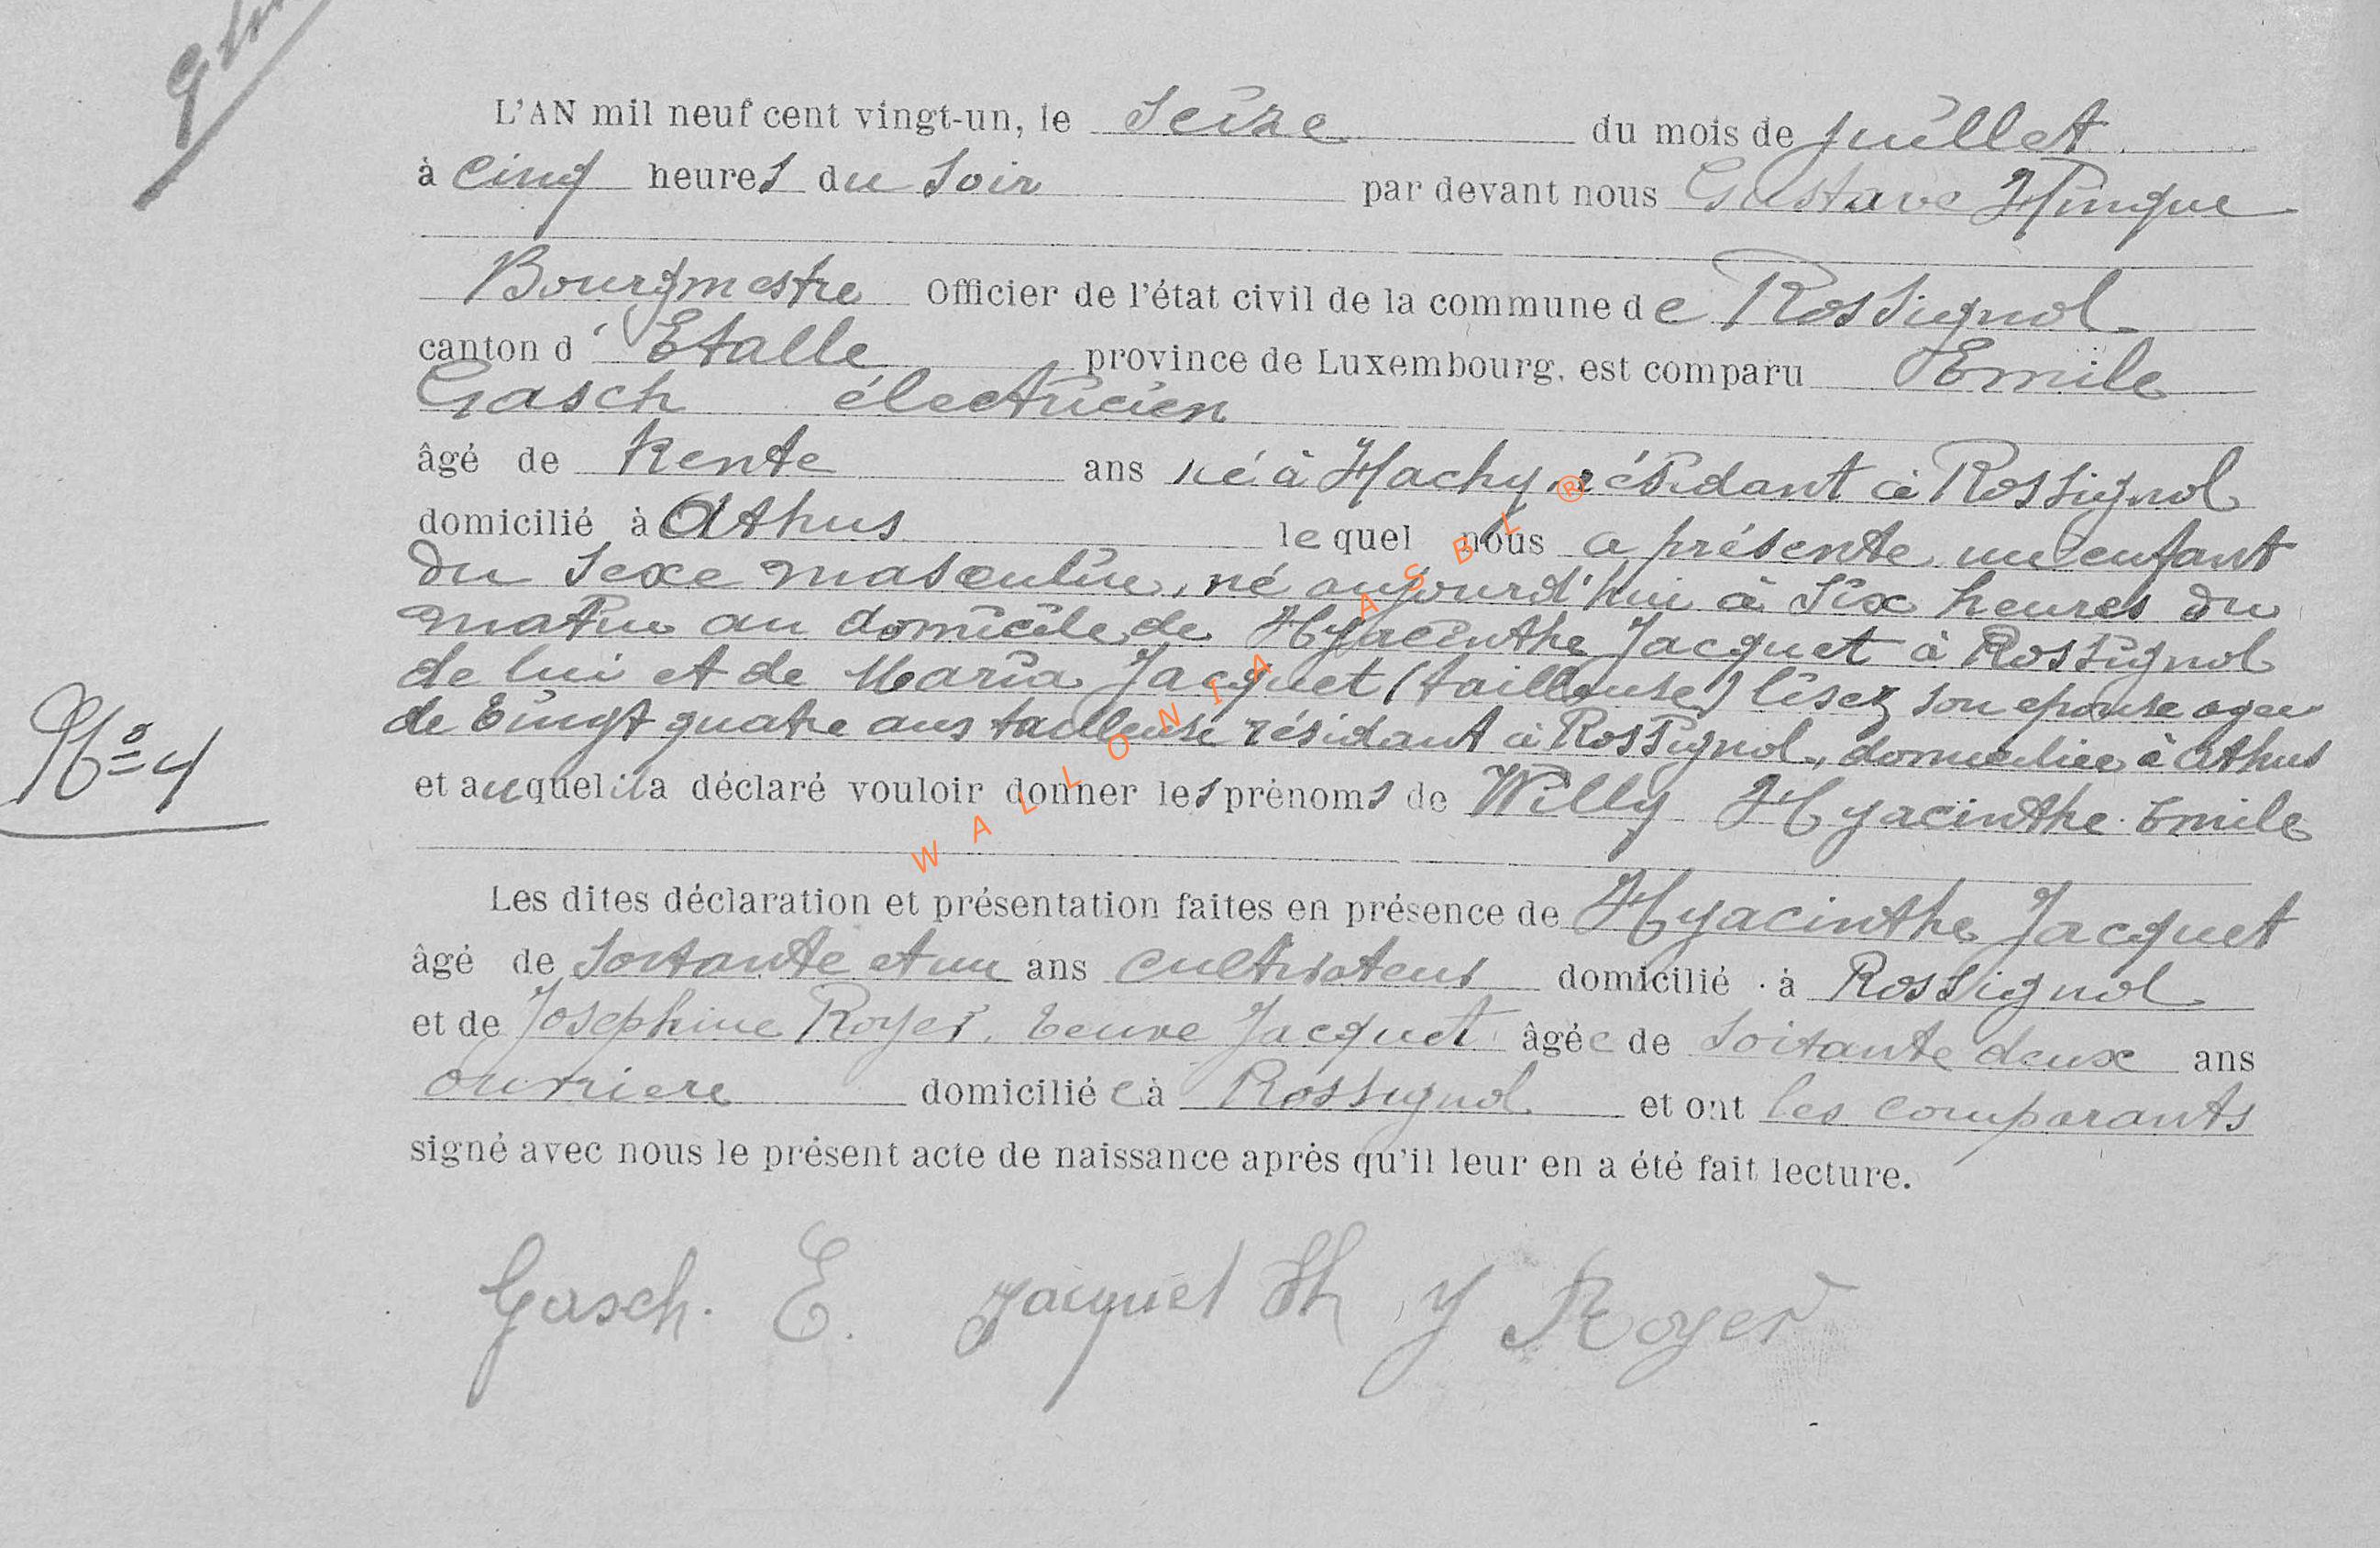 L'AN mil neuf cent vingt-un, le Seize du mois de juillet
à cinq heures du soir par devant nous Gustave Hinque
Bourgmestre Officier de l'état civil de la commune de Rossignol
canton d'Etalle province de Luxembourg, est comparu Emile
Gasch électricien
âgé de trente ans né à Hachy résidant à Rossignol
domicilié à Athus lequel nous a présenté un enfant
du sexe masculin, né aujourd'hui à six heures du
matin au domicile de Hyacinthe Jacquet à Rossignol
de lui et de Maria Jacquet (tailleuse) lisez son epouse agée
de vingt quatre ans tailleuse résidant à Rossignol, domiciliée à Athus
N° 4
et auquel il a déclaré vouloir donner les prénoms de Willy Hyacinthe Emile
Les dites déclaration et présentation faites en présence de Hyacinthe Jacquet
âgé de soixante et un ans cultivateur domicilié à Rossignol
et de Josephine Royer, veuve Jacquet âgée de soixante deux ans
ouvriere domiciliée à Rossignol et ont les comparants
signé avec nous le présent acte de naissance après qu'il leur en a été fait lecture.
Gasch. E. Jacquet Th J Royer
WALLONIA ASBL ®